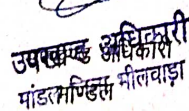 उपखण्ड अधिकारी
मांडलमण्डिल भीलवाड़ा